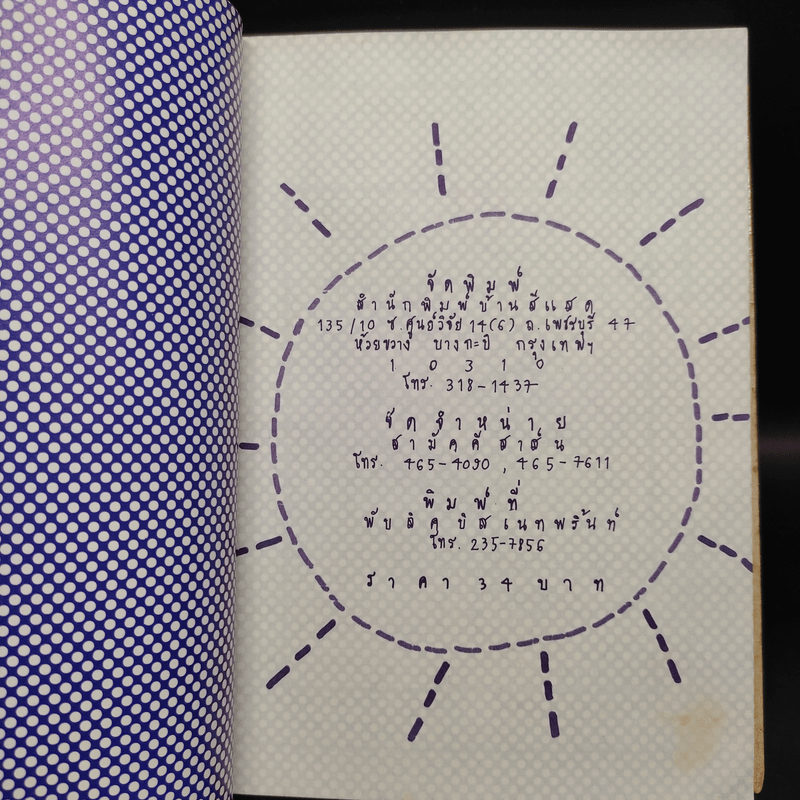 จัดพิมพ์
สำนักพิมพ์บ้านสีแสด
135/10 ซ.ศูนย์วิจัย 14(6) ถ.เพชรบุรี 47
ห้วยขวาง บางกะปิ กรุงเทพฯ
10310
โทร. 318-1437
จัดจำหน่าย
สามัคคีสาส์น
โทร. 465-4090, 465-7611
พิมพ์ที่
พับลิคบิสเนทพริ้นท์
โทร. 235-7856
ราคา 34 บาท